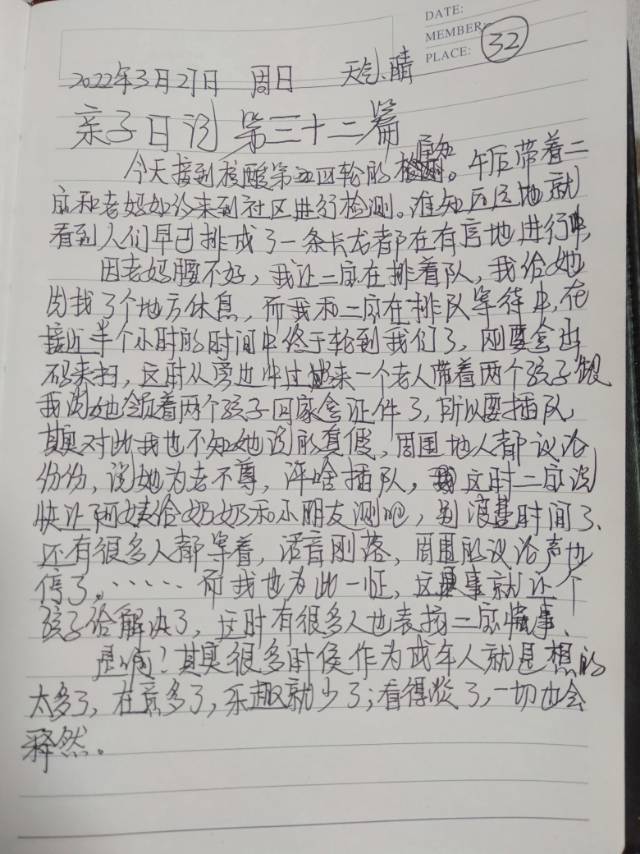 DATE:
MEMBER:
PLACE:
32
2022年3月27日 周日 天气:晴
亲子日记 第三十二篇
今天接到核酸第四轮的检测通知。午后带着二
宝和老妈如约来到社区进行检测。谁知远远地就
看到人们早已排成了一条长龙都在有序地进行中,
因老妈腰不好,我让二宝在排着队,我给她
先找了个地方休息,而我和二宝在排队等待中,在
接近半个小时的时间中终于轮到我们了,刚要拿出
码来扫,这时从旁边冲过来一个老人带着两个孩子跟
我说她领着两个孩子回家拿证件了,所以要插队,
其实对此我也不知她说的真假,周围地人都议论
份份,说她为老不尊,凭啥插队,这时二宝说
快让阿姨给奶奶和小朋友测吧,别浪费时间了、
还有很多人都等着,话音刚落,周围的议论声也
停了。……而我也为此一怔,这事就让个
孩子给解决了,这时有很多人也表扬二宝懂事、
是啊!其实很多时侯作为成年人就是想的
太多了,在意多了,乐趣就少了;看得淡了,一切也会
释然。